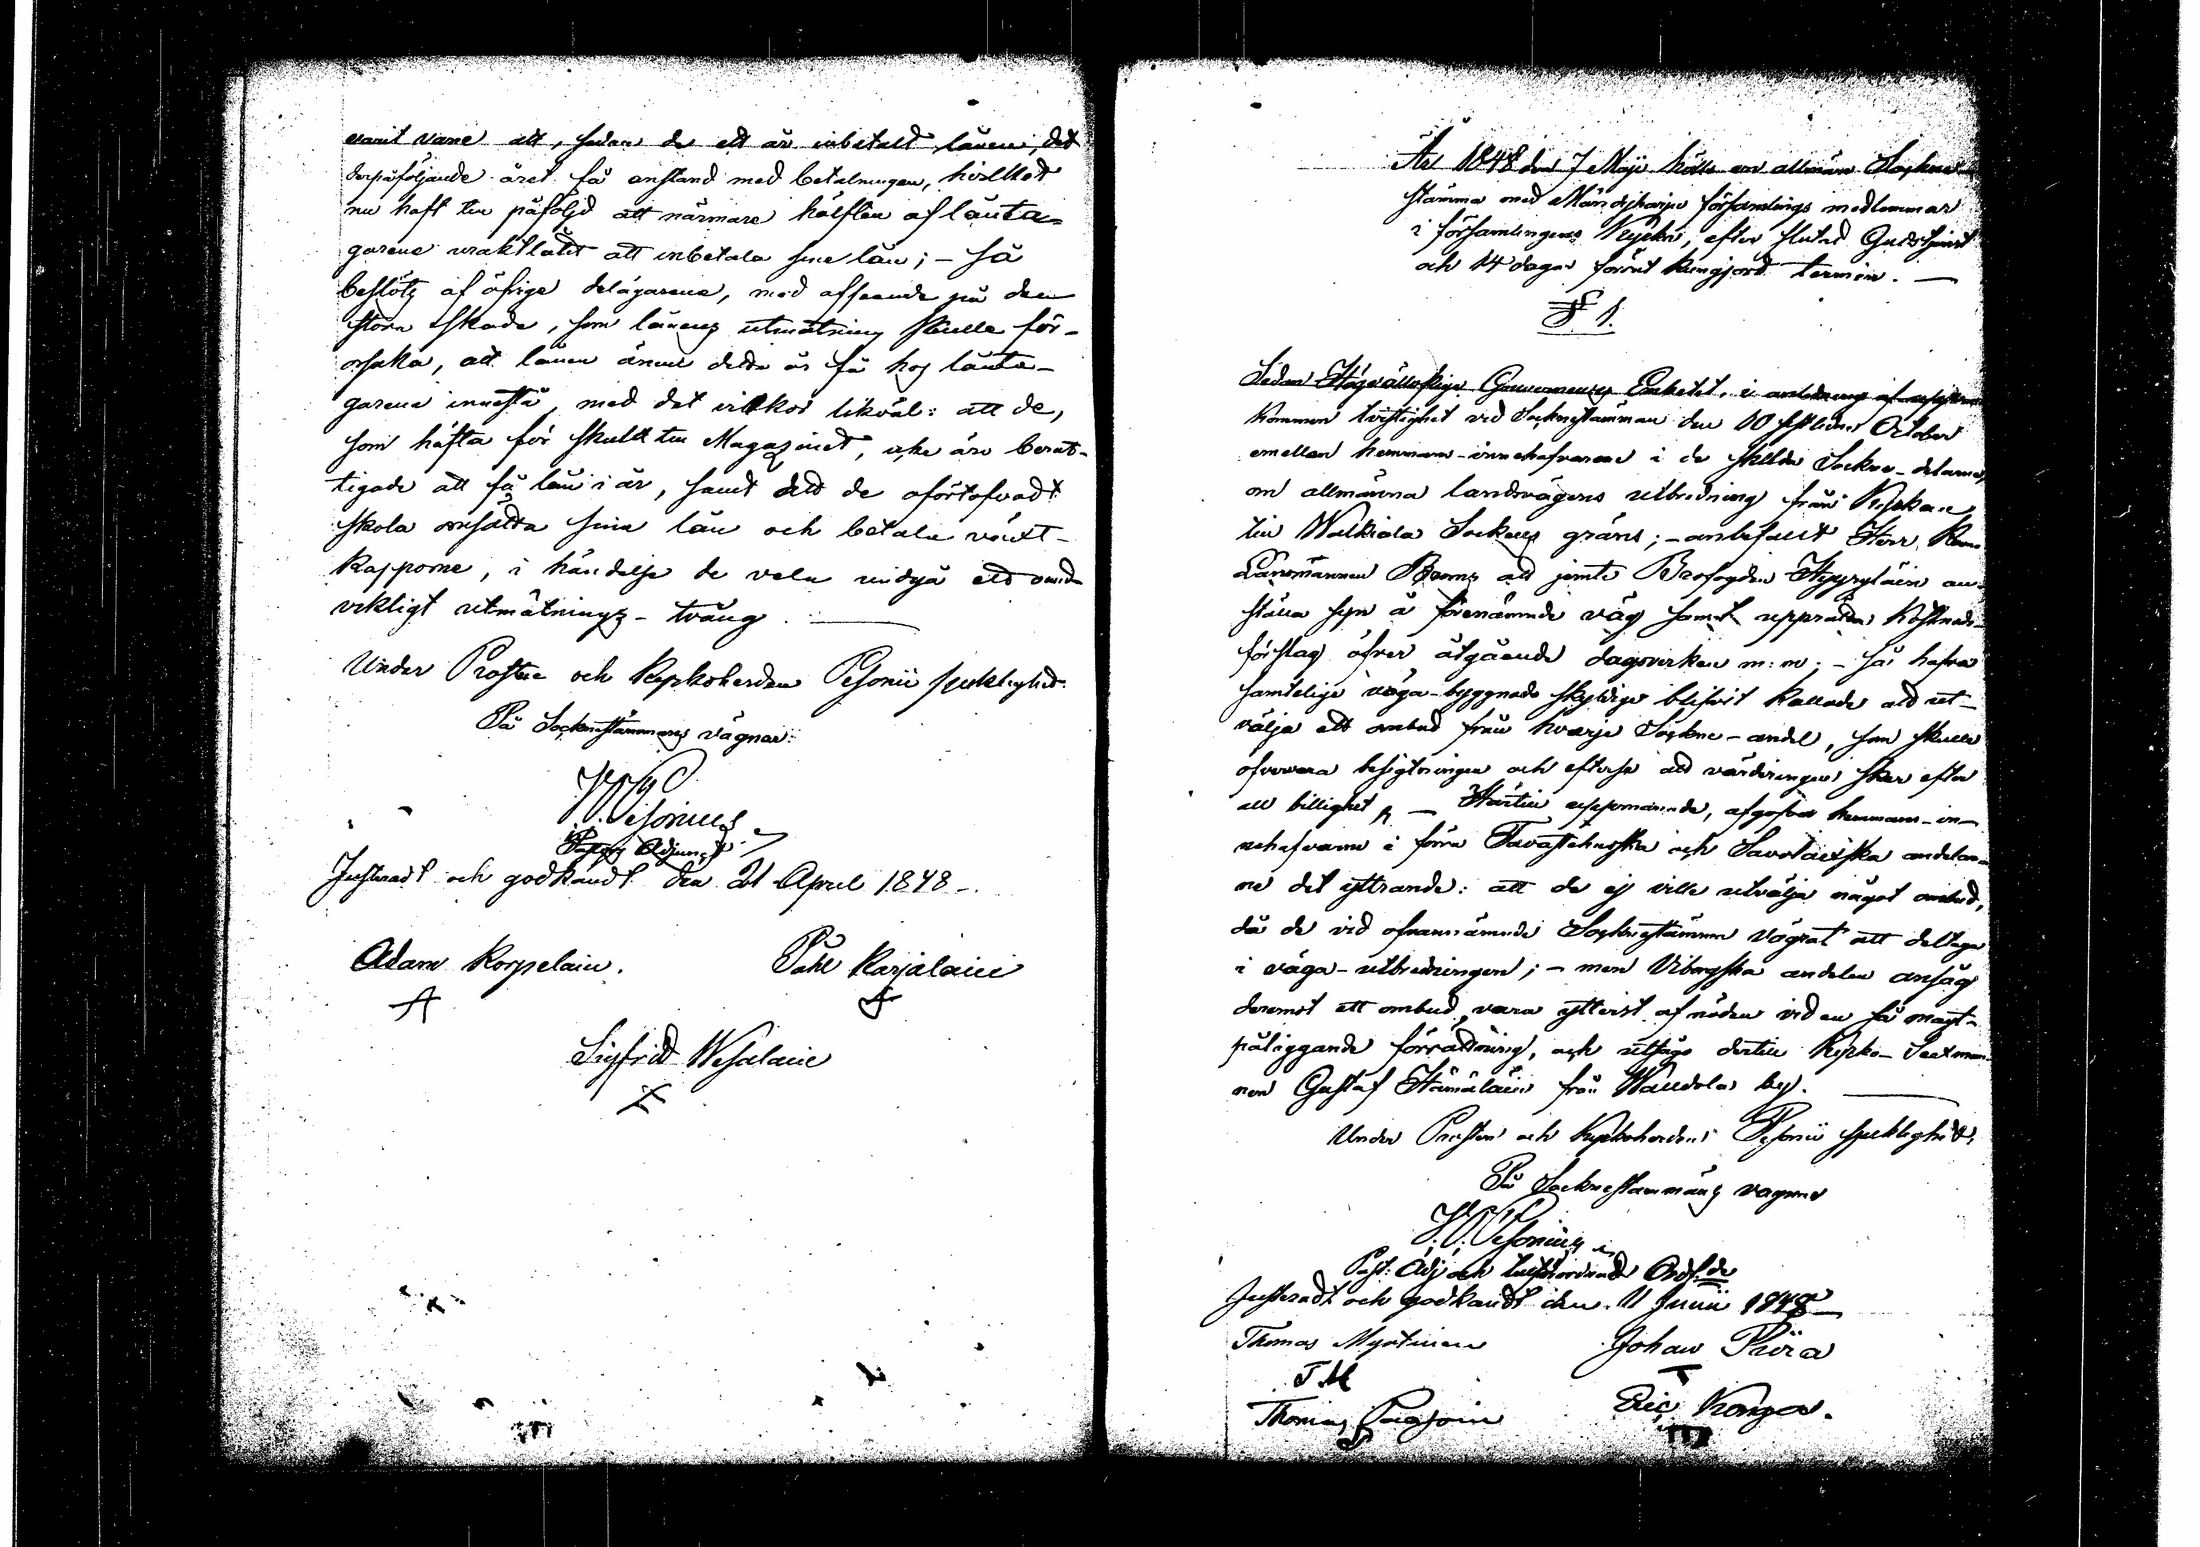 varit vane att, sedan de ett år inbetalt lånen, det
derpåföljande året få anstånd med betalningen, hvilket
nu haft till påföljd att närmare hälften af lånta-
garene uraktlåtit att inbetala sine lån; – så
beslöts af öfrige delägarene, med afseende på den
stora skada, som lånens utmätning skulle för-
orsaka, att lånen ännu detta år få hos lånta-
garene innestå, med det villkor likväl: att de,
som häfta för skuld till Magazinet, icke äro berät-
tigade att få lån i år, samt att de oförtöfvadt
skola omsätta sina lån och betala växt-
kapporne, i händelse de vela undgå ett ound-
vikligt utmätnings-tvång.
Under Prosten och Kyrkoherden Pesonii sjuklighet.
På Sockenstämmans vägnar:
Pesonius
Adjunct.
Justeradt och godkändt den 21 April 1848.
Adam Korpelain. Påhl Karjalain
Sigfrid Wesalain
År 1848 den 7 Maji hölls en allmän Sockne-
stämma med Mändyharju församlings medlemmar
i församlingens Kyrka, efter slutad Gudstjenst
och 14 dagar förut kungjord termin. —
§ 1.
Sedan Högvällofliga Gouverneurs Embetet, i anledning af uppkom-
kommen tvistighet vid Socknestämman den 10 sistlidne October
emellan hemmans-innehafvarene i de skilda Sockne-delarne,
om allmänna landsvägens utbredning från Kyrkan
till Walkiala Sockens gräns; – anbefallt Herr
Länsmannen Brems att jemte Brofogden Hyyryläin an-
ställa syn å förenämnde väg samt upprätta kostnads-
förslag öfver åtgående dagsverken m: m; – så hafva
samtelige väga-byggnads skyldige blifvit kallade att ut-
välja ett ombud från hvarje Sockne-andel, som skulle
öfvervara besigtningen och efterse att värderingen sker efter
all billighet — Härtill uppmanade, afgåfvo hemmans-in-
nehafvarne i förra Tavastehuska och Savolaxska andelar-
ne det yttrande: att de ej ville utvälja något ombud,
då de vid ofvannämnde Socknestämma vägrat att deltaga
i väga-utbredningen; – men Viborgska andelen ansåg
deremot ett ombud vara ytterst af nöden vid en så magt-
påliggande förrättning, och utsågo dertill Kyrko-Sexman-
nen Gustaf Hämäläin från Wandola by.
Under Prosten och Kyrkoherdens Pesonii sjuklighet,
På Socknestämmans vägnar
Pesonius
Past: Adj och Ordf.de
Justeradt och godkändt den 11 Junii 1848
Thomas Myntinen Johan Piira
T M
Thomas Eric Konga.